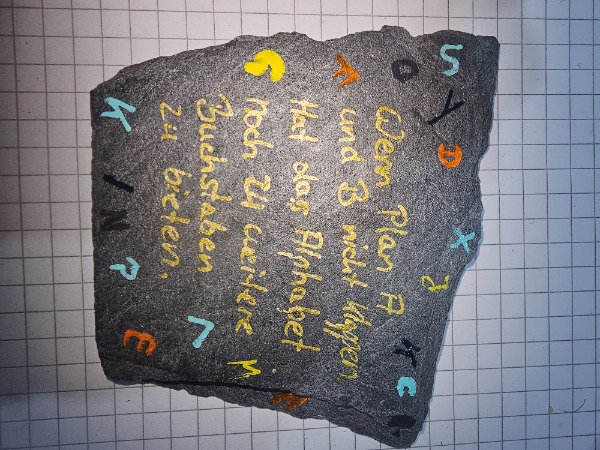 Wenn Plan A
und B nicht klappen
Hat das Alphabet
noch 24 weitere
Buchstaben
zu bieten.
S Y D X B K C
O
F
G
K I N P E
L
M